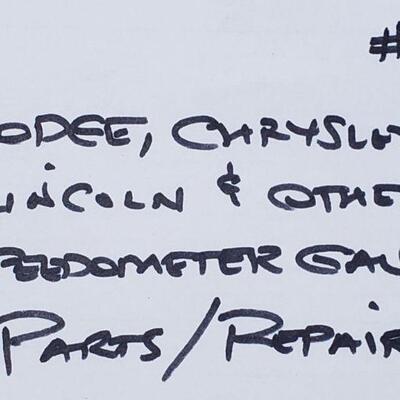 #
ODGE, CHRYSLE
LINCOLN & OTHE
PEEDOMETER GAU
PARTS/REPAIR